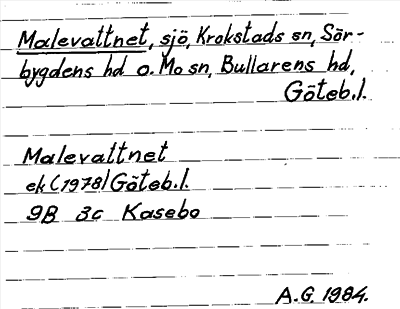 Malevattnet, sjö, Krokstads sn, Sör-
bygdens hd o. Mo sn, Bullarens hd,
Göteb.l.
Malevattnet
ek (1978) Göteb.l.
9B 3c Kasebo
A.G. 1984.